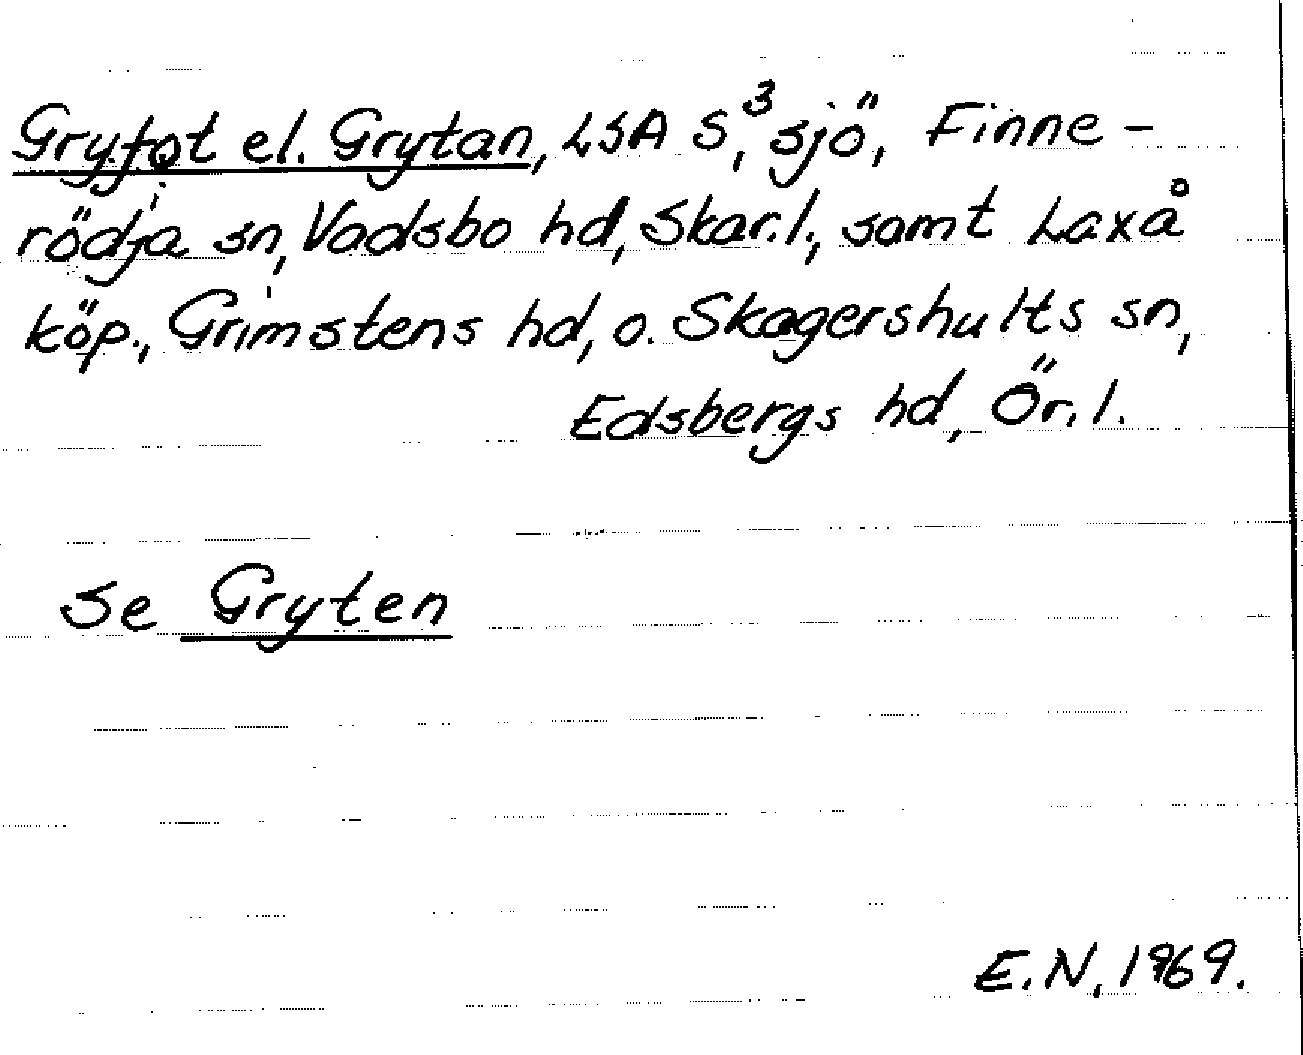 Gryfot el. Grytan, LSA S³, sjö, Finne-
rödja sn, Vadsbo hd, Skar.l., samt Laxå
köp., Grimstens hd, o. Skagershults sn,
Edsbergs hd, Ör.l.
se Gryten
E.N, 1969.